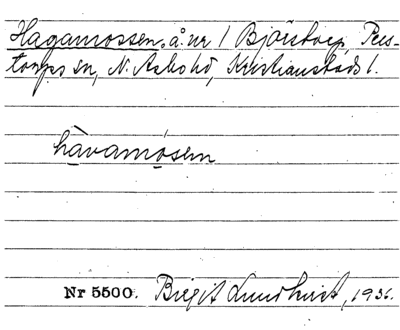 Hagamossen, å. nr 1 Bjärstorp, Pers-
torps sn, N. Åsbo hd, Kristianstads l.
hàvamósen
Nr 5500. Birgit Lundkvist, 1936.